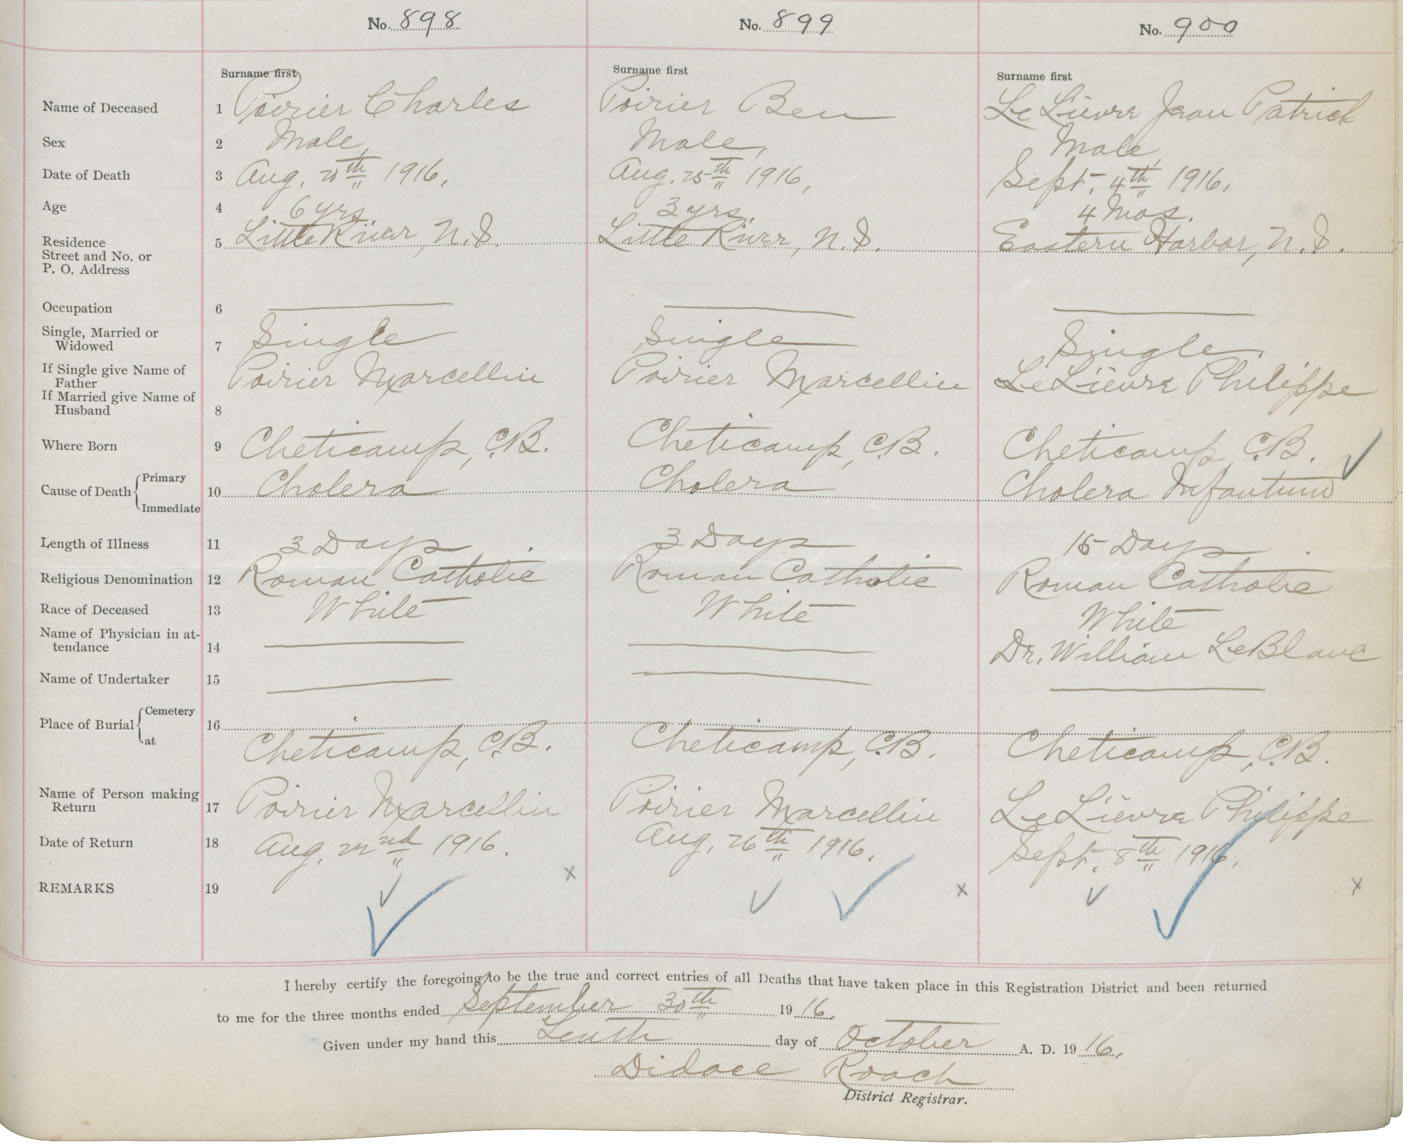 No. 898 No. 899 No. 900
Surname first Surname first Surname first
Name of Deceased 1 Poirier Charles Poirier Ben Le Lièvre Jean Patrick
Sex 2 Male, Male, Male,
Date of Death 3 Aug. 20th 1916. Aug. 25th 1916. Sept. 4th 1916.
Age 4 6 yrs. 3 yrs. 4 Mos.
Residence 5 Little River, N.S. Little River, N.S. Eastern Harbor, N.S.
Street and No. or
P. O. Address
Occupation 6
Single, Married or
Widowed 7 Single Single Single
If Single give Name of
Father Poirier Marcellin Poirier Marcellin Le Lièvre Philippe
If Married give Name of
Husband 8
Where Born 9 Cheticamp, C.B. Cheticamp, C.B. Cheticamp, C.B.
Cause of Death { Primary
10 Cholera Cholera Cholera Infantum
Immediate
Length of Illness 11 3 Days 3 Days 15 Days
Religious Denomination 12 Roman Catholic Roman Catholic Roman Catholic
Race of Deceased 13 White White White
Name of Physician in at-
tendance 14 Dr. William LeBlanc
Name of Undertaker 15
Place of Burial { Cemetery
16
at Cheticamp, C.B. Cheticamp, C.B. Cheticamp, C.B.
Name of Person making
Return 17 Poirier Marcellin Poirier Marcellin Le Lièvre Philippe
Date of Return 18 Aug. 22nd 1916. Aug. 26th 1916. Sept. 8th 1916.
REMARKS 19 x x x
I hereby certify the foregoing to be the true and correct entries of all Deaths that have taken place in this Registration District and been returned
to me for the three months ended September 30th 1916.
Given under my hand this Tenth day of October A. D. 1916.
Didace Roach
District Registrar.